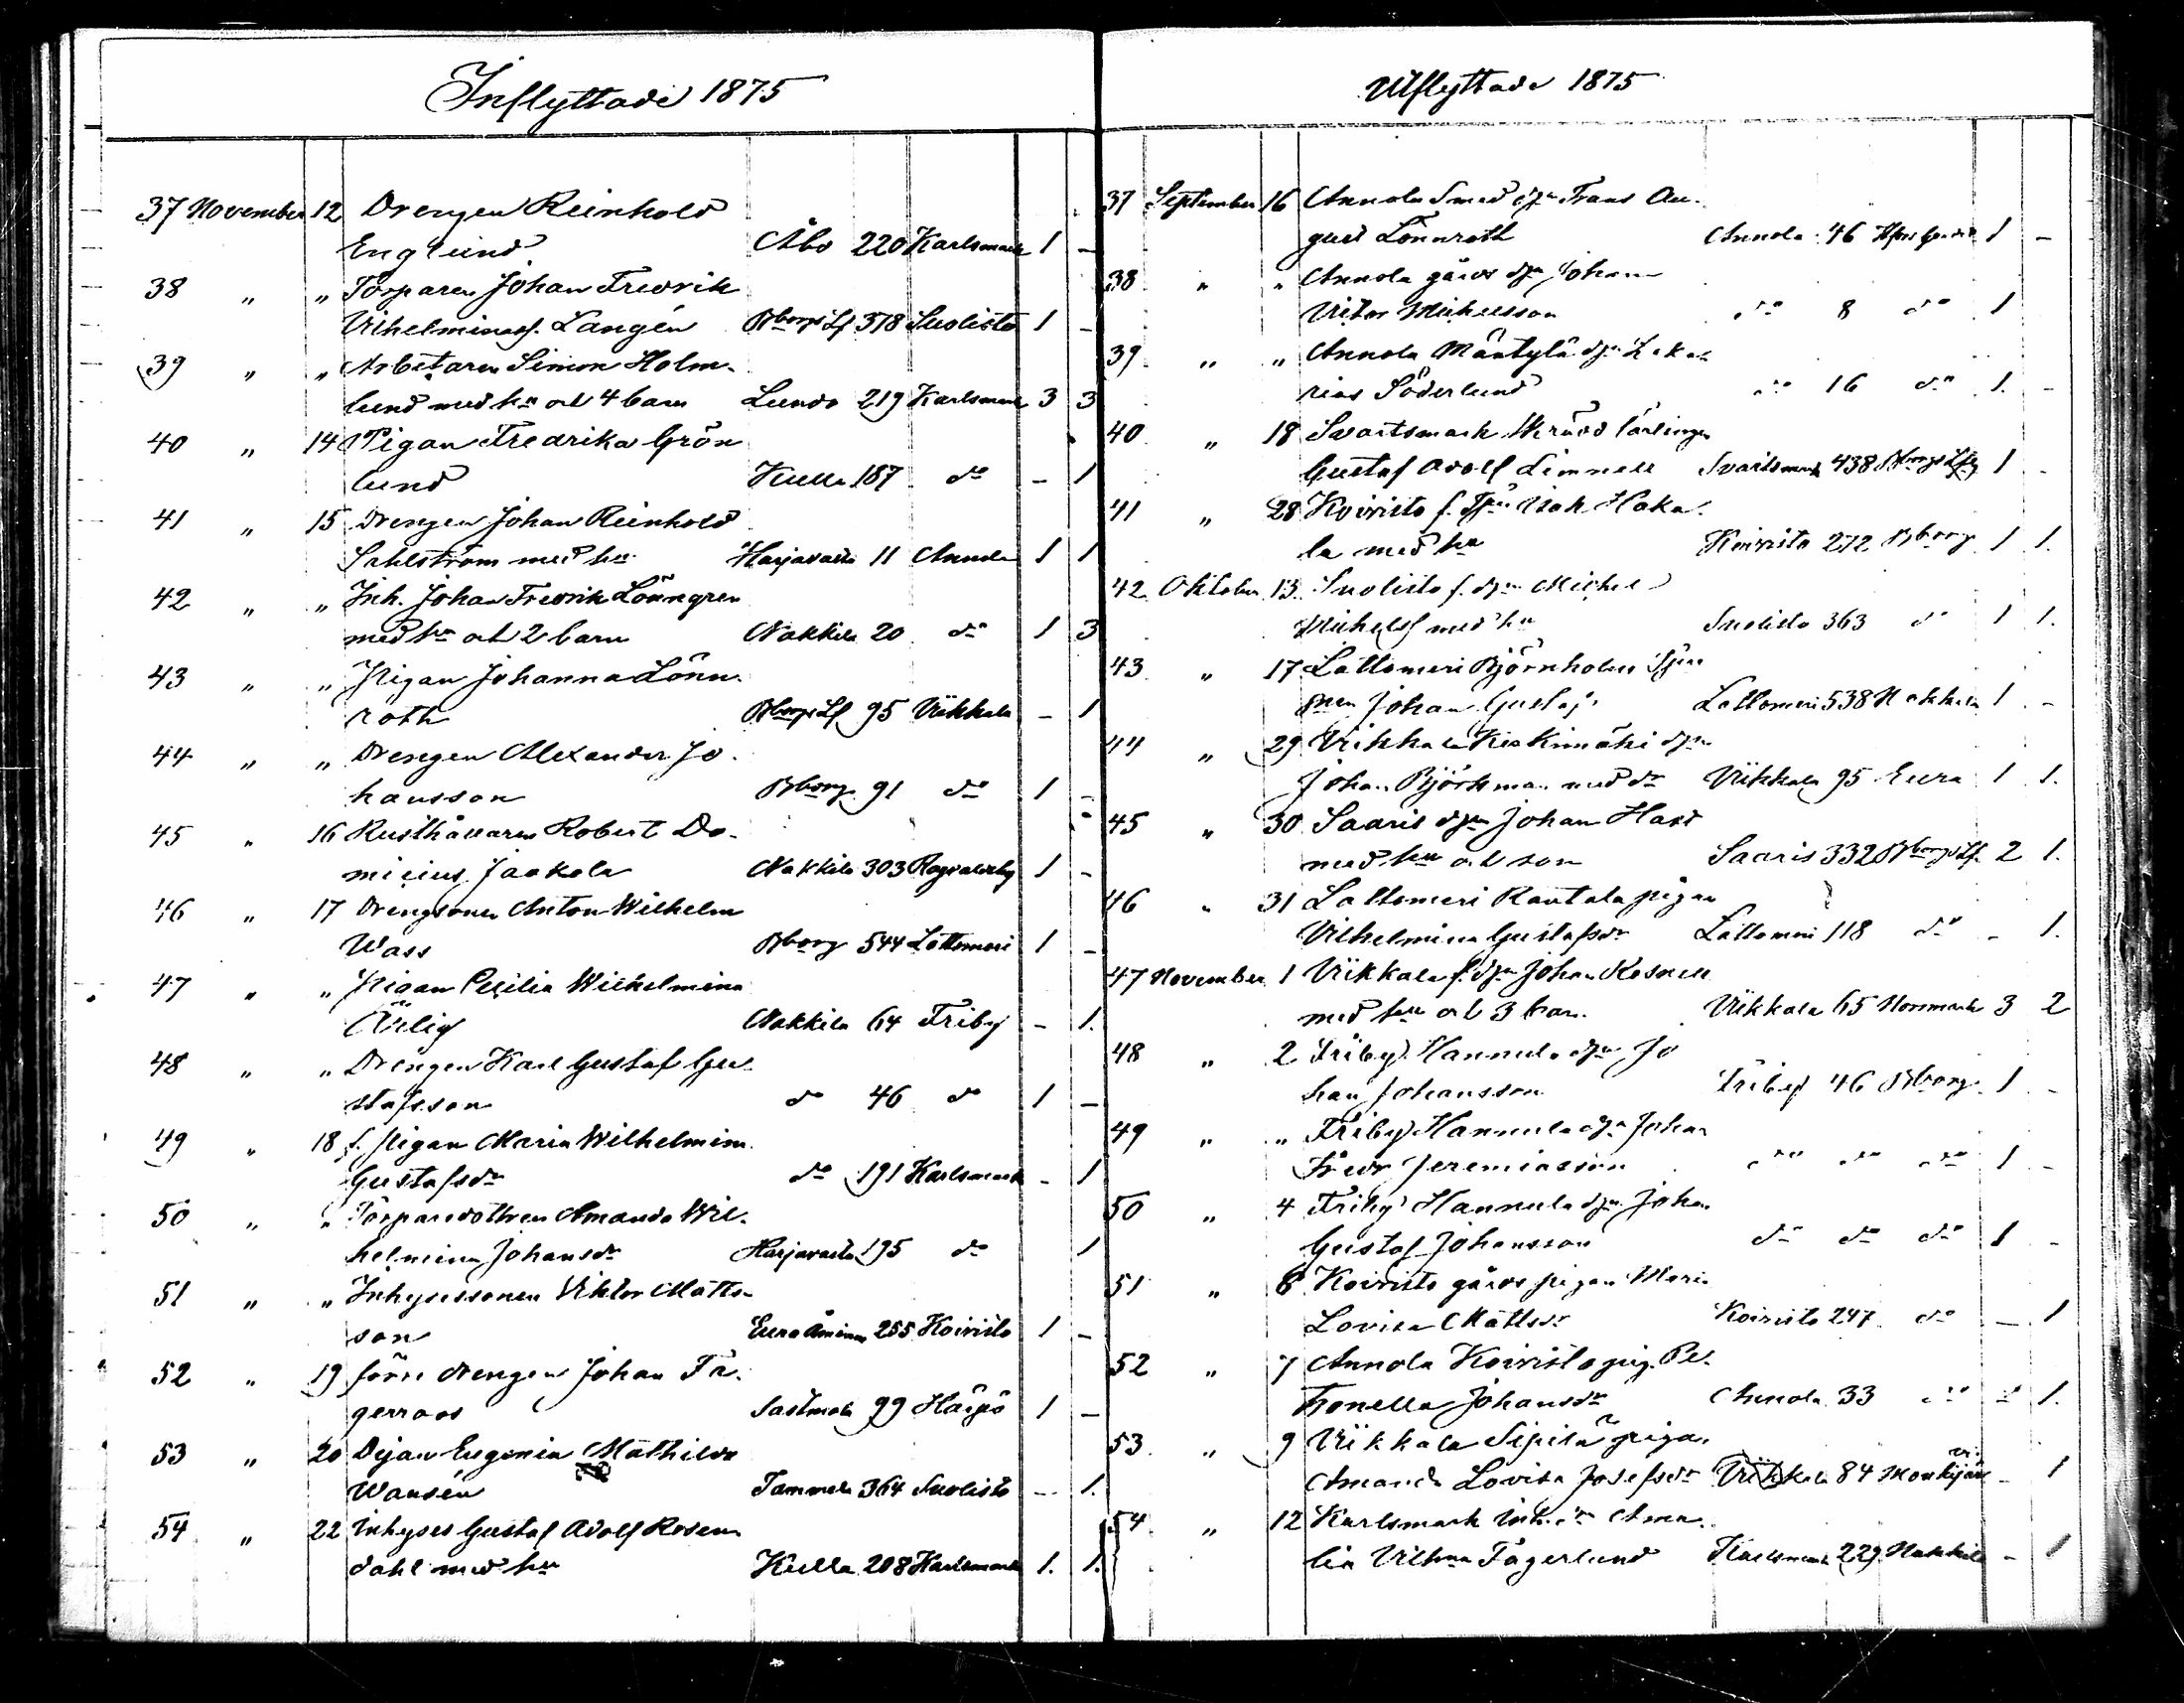 Inflyttade 1875
37 November 12 Drengen Reinhold
Englund Åbo 220 Karlsmark 1 –
38 " " Torparen Johan Fredrik
Vilhelminass. Langén Bborgs Lf 378 Suolisto 1 –
39 " " Arbetaren Simon Holm-
lund med hu och 4 barn Lundo 219 Karlsmark 3 3
40 " 14 Pigan Fredrika Grön
lund Kulla 187 do – 1
41 " 15 Drengen Johan Reinhold
Sahlström med hu Harjavalta 11 Annola 1 1
42 " " Inh. Johan Fredrik Lönngren
med hu och 2 barn Nakkila 20 do 1 3
43 " " Pigan Johanna Lönn-
roth Bborgs Lf 95 Viikkala – 1
44 " " Drengen Alexander Jo-
hansson Bborg 91 do 1 –
45 " 16 Rusthållaren Robert Do-
micius Jaakola Nakkila 303 Ragvaldsby 1 –
46 " 17 Drengsonen Anton Wilhelm
Wass Bborg 544 Lattomeri 1 –
47 " " Pigan Cecilia Wilhelmina
Ärlig Nakkila 64 Friby – 1.
48 " " Drengen Karl Gustaf Gu-
stafsson do 46 do 1 –
49 " 18 f. pigan Maria Wilhelmina
Gustafsdr do 191 Karlsmark – 1
50 " " Torparedottren Amanda Wil-
helmina Johansdr Harjavalta 195 do 1
51 " " Inhysessonen Viktor Matts-
son Eura Åminne 255 Koivisto 1 –
52 " 19 förre drengen Johan Fa-
gerroos Sastmola 99 Harjis 1 –
53 " 20 Dejan Eugenia Mathilda
Wansén Tammela 364 Suolisto – 1.
54 " 22 Inhyses Gustaf Adolf Rosen-
dahl med hu Kulla 208 Karlsmark 1. 1.
Utflyttade 1875
37 September 16 Annola Smed djn Frans Au-
gust Lönnroth Annola 46 1 –
38 " " Annola gårds djn Johan
Viktor Michelsson do 8 do 1
39 " " Annola Mäntylä djn Zaka-
rias Söderlund do 16 do 1. –
40 " 18 Svartsmark Skrädd lärlingen
Gustaf Adolf Limnell Svartsmark 438 Bborgs Lfg 1 –
41 " 28 Koivisto f. djn Isak Haka-
la med hu Koivisto 272 Bborg 1 1.
42 Oktober 13. Suolisto f. djn Michel
Michelss med hu Suolisto 363 do 1 1.
43 " 17 Lattomeri Björnholm
Johan Gustafs Lattomeri 538 Nakkila 1 –
44 " 29 Viikkala Kiskinmäki djn
Johan Björkman med dr Viikkala 95 Eura 1 1.
45 " 30 Saaris djn Johan Hast
med hu och son Saaris 332 Bborgs Lf. 2 1.
46 " 31 Lattomeri Rantala pigan
Vilhelmina Gustafsdr Lattomeri 118 do – 1.
47 November 1 Viikkala f. djn Johan Rosnell
med hu och 3 barn Viikkala 65 Norrmark 3 2
48 " 2 Friby Hannula djn Jo
han Johansson Friby 46 Bborg 1 –
49 " " Friby Hannula djn Johan
Fredr Jeremiasson do do do 1 –
50 " 4 Friby Hannula djn Johan
Gustaf Johansson do do do 1 –
51 " 6 Koivisto gårds pigan Maria
Lovisa Mattsdr Koivisto 247 do – 1
52 " 7 Annola Koivisto pig. Pe-
tronella Johansdr Annola 33 do – 1.
53 " 9 Viikkala Sipilä pigan
Amanda Lovisa Josefsdr Viikkala 84 Mouhijärvi – 1
54 " 12 Karlsmark Inh. dr Ama-
lia Vilhma Fagerlund Karlsmark 229 Nakkila – 1